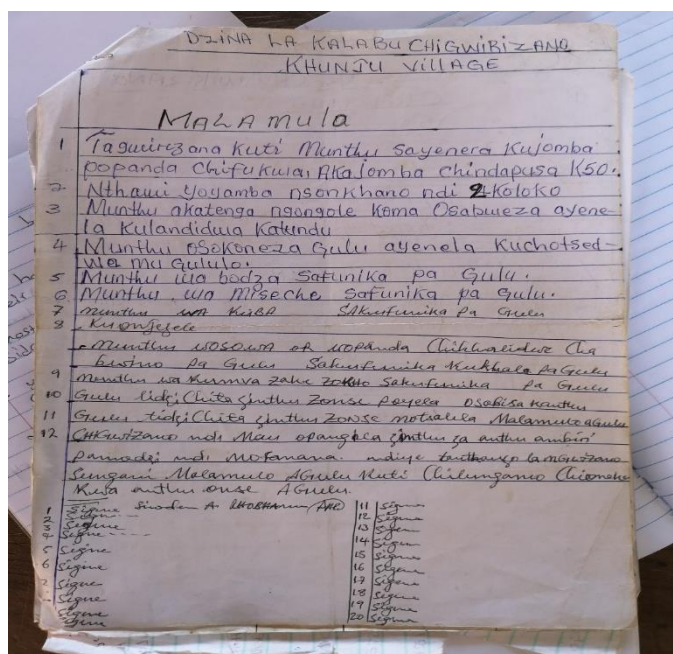 DZINA LA KALABU CHIGWIRIZANO
KHUNJU VILLAGE
MALAMULA
1 Tagwirizana Kuti Munthu Sayenera Kujomba
popanda Chifukwa. Akajomba chindapusa K50.
2 Nthawi yoyamba nsonkhano ndi 2koloko
3 Munthu akatenga ngongole koma Osabweza ayene-
la Kulandidwa Katundu
4 Munthu Osokoneza Gulu ayenela Kuchotsed-
wa mu Gululo.
5 Munthu wa bodza Safunika pa Gulu.
6 Munthu wa Miseche Safunika pa Gulu.
7 munthu wa KUBA SAkufunika Pa Gulu
8 Kuonjezele
- Munthu wosowa or wopanda Chikhalidwe Cha
bwino pa Gulu Sakufunika Kukhala pa Gulu
9 munthu wa Kumva zake zokho Sakufunika Pa Gulu
10 Gulu lidziChita zinthu Zonse posela Osabisa Kanthu
11 Gulu tidziChita zinthu Zonse motsatila Malamulo aGulu
12 CHIGwiZano ndi Mau opangila zinthu za anthu ambiri
pamodzi ndi mofanana. ndiye
Sungani Malamulo AGulu Kuti Chilungamo Chioneke
Kwa anthu onse AGulu.
1 Signe 11 Signe
2 Signe 12 Signe
3 Signe 13 Signe
4 Signe 14 Signe
5 Signe 15 Signe
6 Signe 16 Signe
Signe 17 Signe
Signe 18 Signe
Signe 19 Signe
Signe 20 Signe